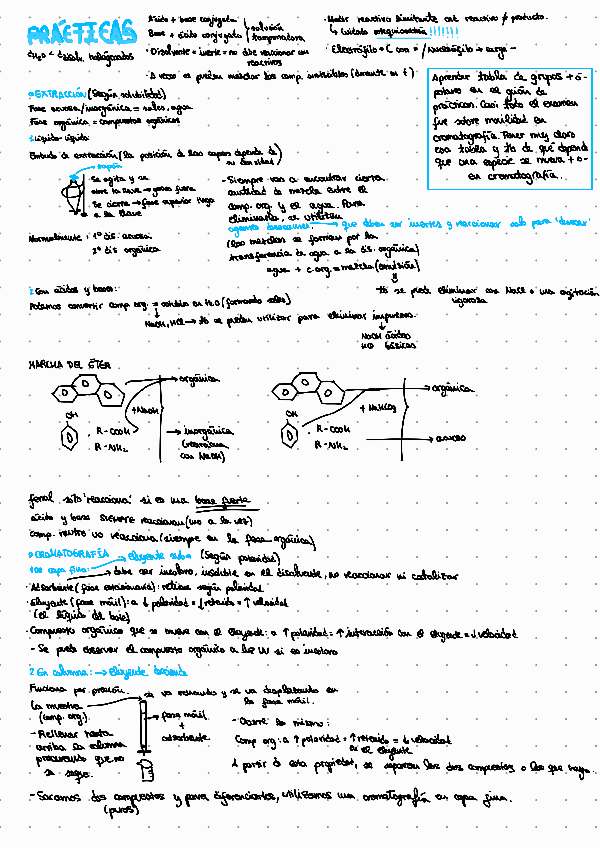 PRÁCTICAS
Ácido + base conjugada
Base + ácido conjugado
solución tamponadora
· Disolvente = inerte = no debe reaccionar con reactivos
· Medir reactivo limitante cat reactivo ≠ producto.
↳ cuidado estequiometría !!!!!!!
· Electrófilo = C con + / Nucleófilo = carga -
Aprender tabla de grupos + o -
polares en el guión de
prácticas. Casi todo el examen
fue sobre movilidad en
cromatografía. Tener muy claro
esa tabla y tb de qué depende
que una especie se mueva + o -
en cromatografía.
EXTRACCIÓN (según solubilidad)
Fase acuosa/inorgánica = sales, agua
Fase orgánica = compuestos orgánicos
1 Líquido-líquido:
Embudo de extracción (la posición de las capas depende de su densidad)
tapón
Se agita y se
abre la llave → gases fuera
Se cierra → fase superior
a la llave
Normalmente: 1º dis. acuosa
2º dis. orgánica
- Siempre vas a encontrar cierta
cantidad de mezcla entre el
comp. org y el agua. Para
eliminarla, se utilizan
agentes desecantes → que deben ser inertes y reaccionar solo para "desecar"
(las mezclas se forman por la
transferencia de agua a la dis. orgánica)
agua + c. org = mezcla (emulsión)
tb se puede eliminar con NaCl o una agitación
vigorosa
2 Con ácidos y bases:
Podemos convertir comp org. = soluble en H₂O (formando sales)
NaOH, HCl → tb se pueden utilizar para eliminar impurezas.
NaOH ácidos
básicas
MARCHA DEL ÉTER
orgánica
+ NaOH
OH
R-COOH
R-NH₂
inorgánica
(reacciona
con NaOH)
orgánica
+ NaHCO₃
OH
R-COOH
R-NH₂
acuosa
fenol solo "reacciona" si es una base fuerte
ácido y base SIEMPRE reaccionan (uno a la vez)
comp. neutro no reacciona (siempre en la fase orgánica)
CROMATOGRAFÍA → eluyente sube (según polaridad)
1 En capa fina: → debe ser incoloro, insoluble en el disolvente, no reaccionar ni catalizar
· Adsorbente (fase estacionaria): retiene según polaridad
· Eluyente (fase móvil): a ↓ polaridad = ↓ retenido = ↑ velocidad
(el líquido del bote)
· Compuesto orgánico que se mueve con el eluyente: a ↑ polaridad = ↑ interacción con el eluyente = ↓ velocidad
- Se puede observar el compuesto orgánico a luz UV si es incoloro
2 En columna: → Eluyente desciende
Funciona por presión.
La muestra
(comp. org.)
se va echando y se va desplazando en
la fase móvil.
fase móvil
+
adsorbente
- Rellenar hasta
arriba la columna
procurando que no
se seque.
- Ocurre lo mismo:
Comp org: a ↑ polaridad = ↑ retenido = ↓ velocidad
en el eluyente
A partir de esta propiedad, se separan los dos compuestos o los que haya.
- Sacamos dos compuestos y para diferenciarlos, utilizamos una cromatografía en capa fina.
(puros)